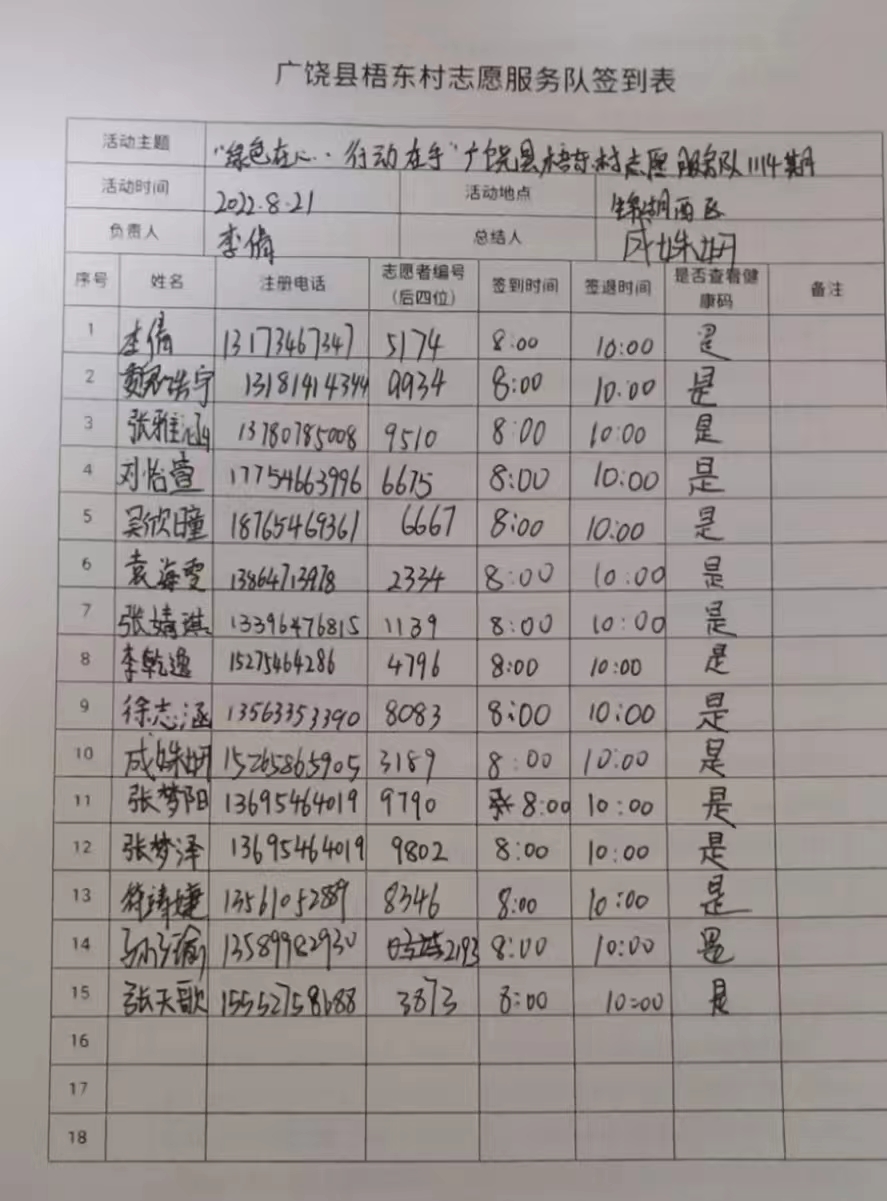 广饶县梧东村志愿服务队签到表
活动主题 "绿色在心··行动在手"广饶县梧东村志愿服务队1114期
活动时间 2022.8.21 活动地点 锦湖西区
负责人 李倩 总结人 成姝妍
序号 姓名 注册电话 志愿者编号（后四位） 签到时间 签退时间 是否查看健康码 备注
1 李倩 13173467347 5174 8:00 10:00 是
2 13181414344 9934 8:00 10:00 是
3 张雅涵 13780785008 9510 8:00 10:00 是
4 刘怡萱 17754663996 6675 8:00 10:00 是
5 吴欣瞳 18765469361 6667 8:00 10:00 是
6 袁海雯 13864713978 2334 8:00 10:00 是
7 张婧淇 13396476815 1139 8:00 10:00 是
8 李乾逸 15275464286 4796 8:00 10:00 是
9 徐志涵 13563353390 8083 8:00 10:00 是
10 成姝妍 15265865905 3189 8:00 10:00 是
11 张梦阳 13695464019 9790 8:00 10:00 是
12 张梦泽 13695464019 9802 8:00 10:00 是
13 1356105289 8346 8:00 10:00 是
14 13589982930 2193 8:00 10:00 是
15 张天歌 15552758688 3873 8:00 10:00 是
16
17
18